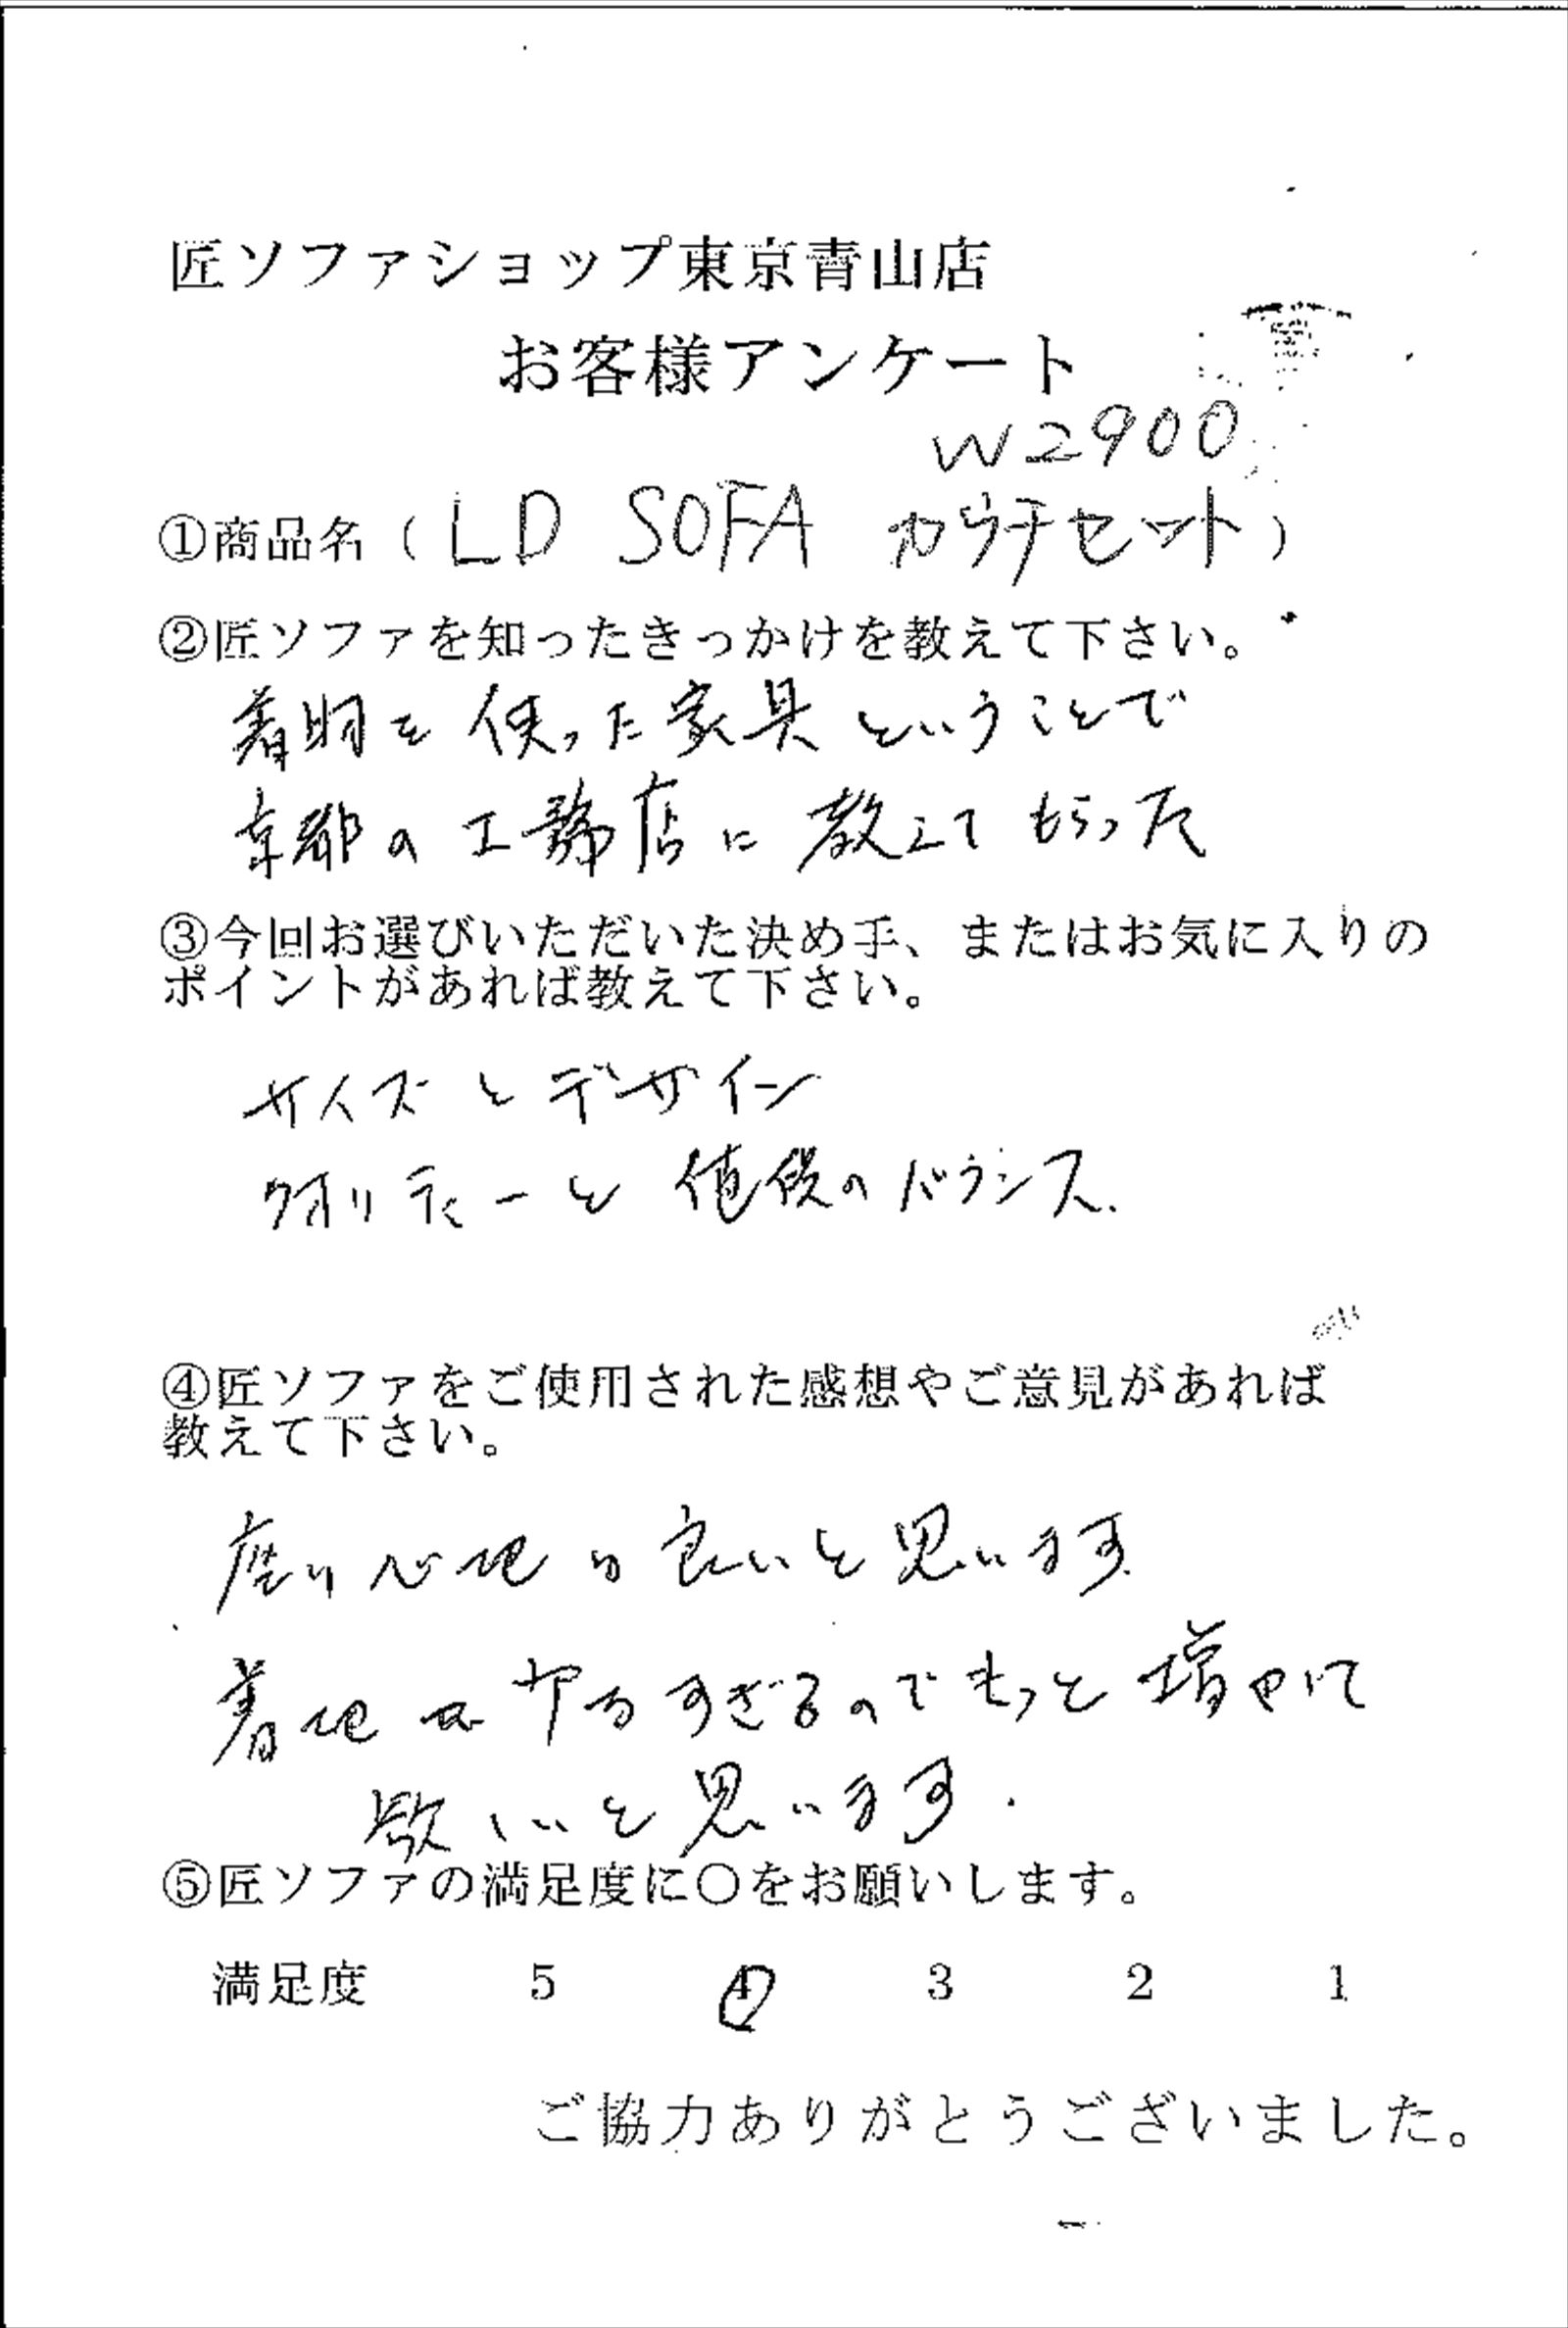 匠ソファショップ東京青山店
お客様アンケート
W2900
①商品名（LD SOFA カウチセット）
②匠ソファを知ったきっかけを教えて下さい。
を使った家具ということで
京都の工務店に教えてもらった
③今回お選びいただいた決め手、またはお気に入りの
ポイントがあれば教えて下さい。
サイズとデザイン
クオリティーと値段のバランス.
④匠ソファをご使用された感想やご意見があれば
教えて下さい。
座り心地は良いと思います.
すぎるのでもっと増やして
欲しいと思います.
⑤匠ソファの満足度に〇をお願いします。
満足度 5 4 3 2 1
ご協力ありがとうございました。